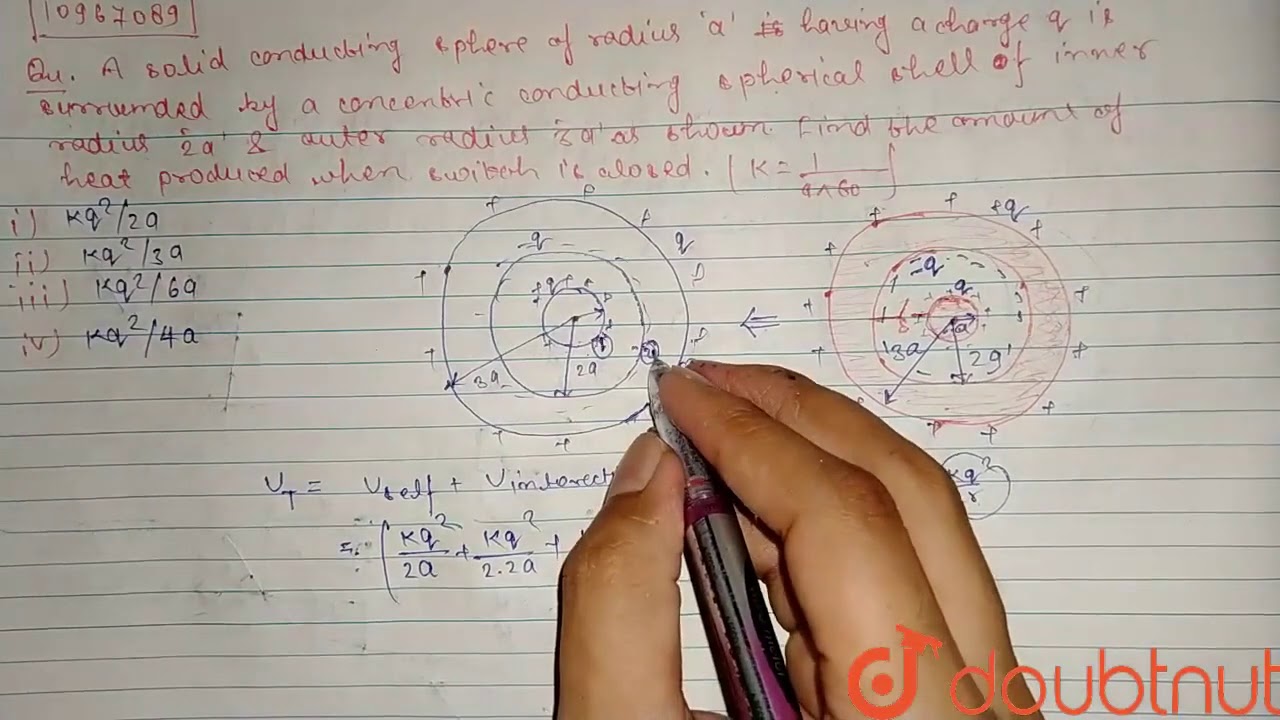 10967089
Qu. A solid conducting sphere of radius 'a' is having a charge q is
surrounded by a concentric conducting spherical shell of inner
radius '2a' & outer radius '3a' as shown. Find the amount of
heat produced when switch is closed. (K = 1/4π∈0)
i) Kq²/2a
ii) Kq²/3a
iii) Kq²/6a
iv) Kq²/4a
-q
q
+q
3a
2a
⇐
+q
-q
q
a
S
'3a'
'2a'
U_T = U_self + U_interact
= (Kq²/2a + Kq²/2.2a +
Kq²/r
doubtnut